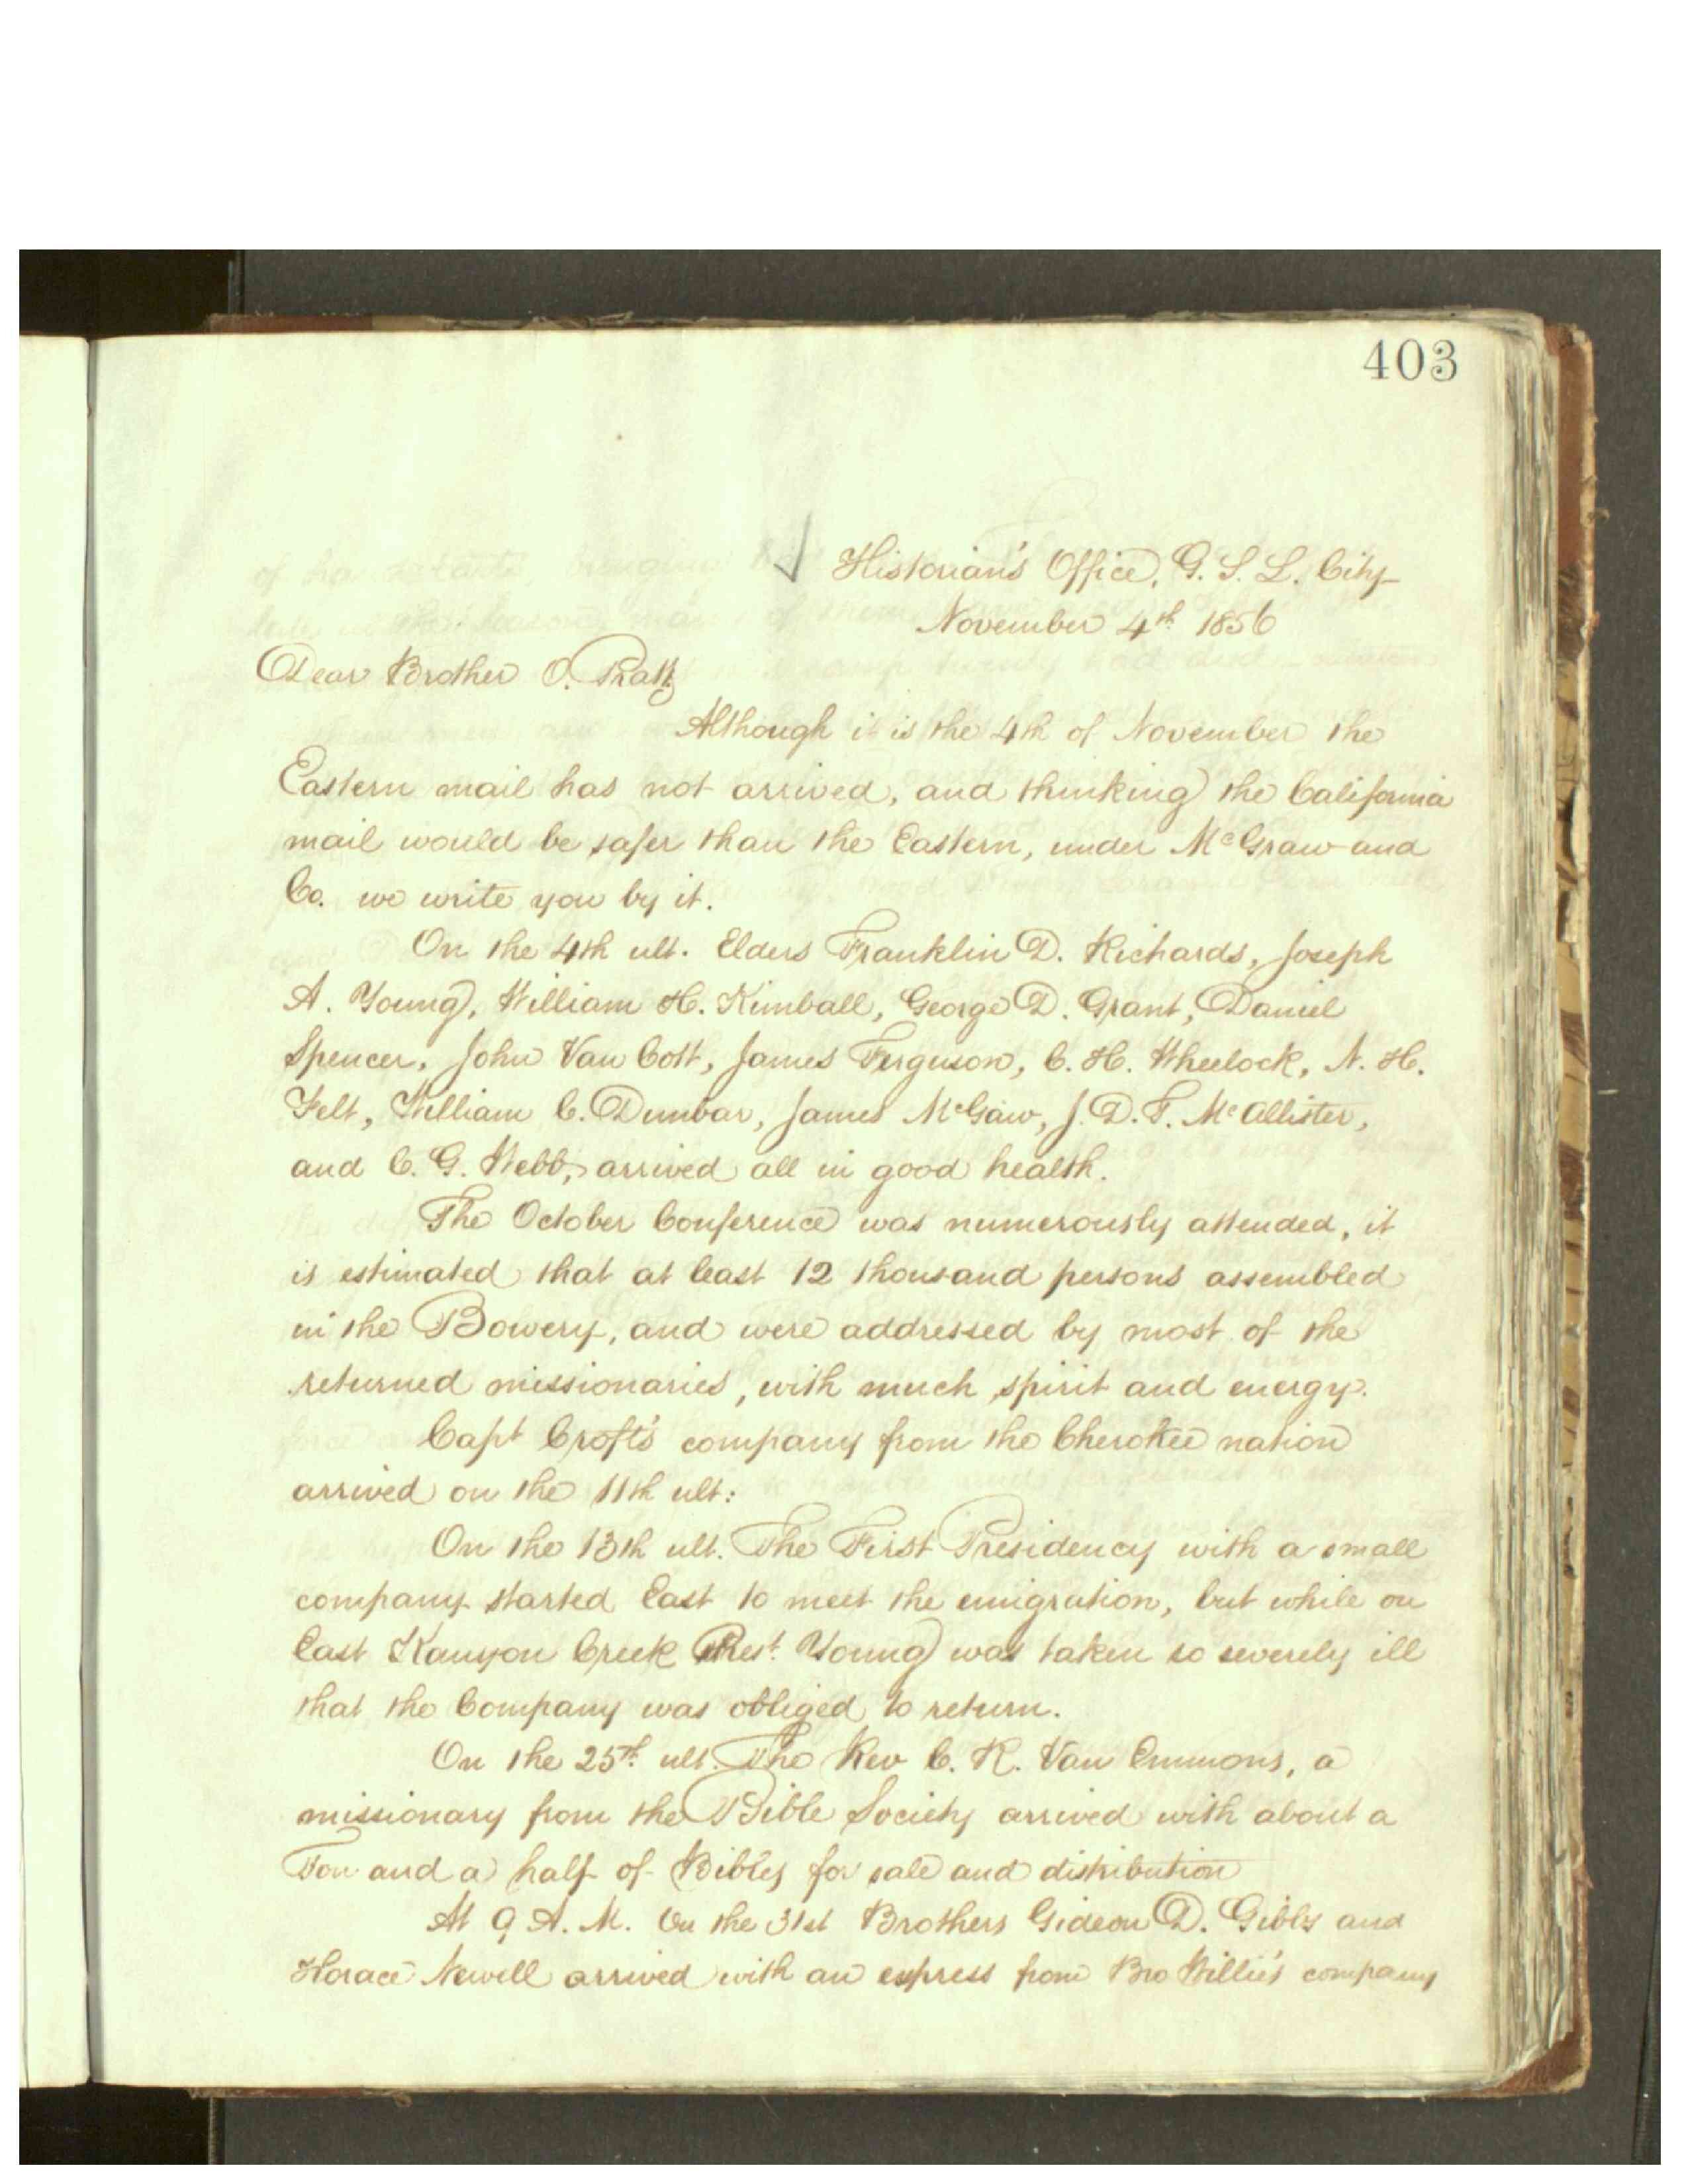 403
Historian's Office, G. S. L. City
November 4th 1856
Dear Brother O. Pratt
Although it is the 4th of November the
Eastern mail has not arrived, and thinking the California
mail would be safer than the Eastern, under McGraw and
Co. we write you by it.
On the 4th ult. Elders Franklin D. Richards, Joseph
A. Young, William H. Kimball, George D. Grant, Daniel
Spencer, John Van Cott, James Ferguson, C. H. Wheelock, N. H.
Felt, William C. Dunbar, James McGaw, J. D. T. McAllister,
and C. G. Webb, arrived all in good health.
The October Conference was numerously attended, it
is estimated that at least 12 thousand persons assembled
in the Bowery, and were addressed by most of the
returned missionaries, with much spirit and energy.
Capt Croft's company from the Cherokee nation
arrived on the 11th ult:
On the 13th ult. The First Presidency with a small
company started East to meet the emigration, but while on
East Kanyon Creek Prest. Young was taken so severely ill
that the Company was obliged to return.
On the 25th ult. The Rev C. R. Van Emmons, a
missionary from the Bible Society arrived with about a
Ton and a half of Bibles for sale and distribution
At 9 A. M. On the 31st Brothers Gideon D. Gibbs and
Horace Newell arrived with an express from Bro Willie's company